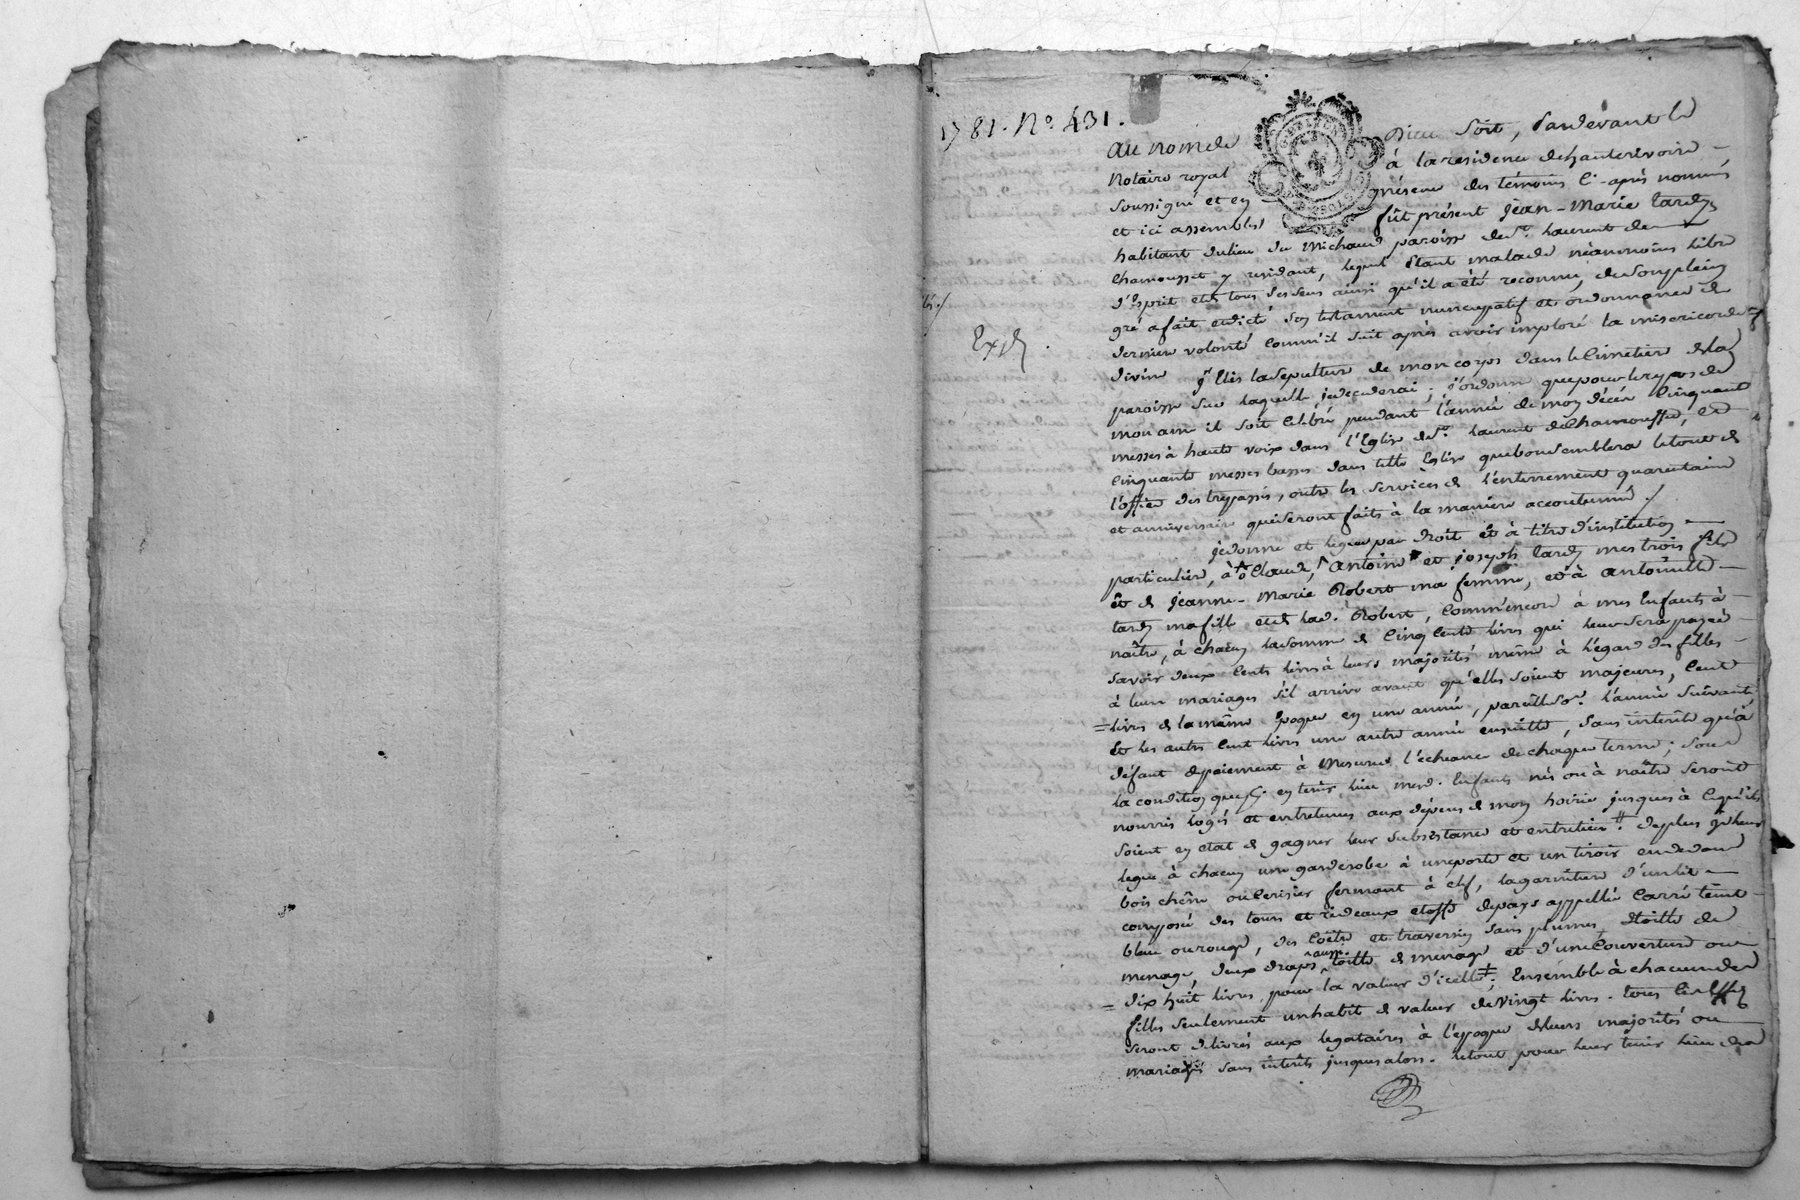 1781. No. 431.
au nom de Dieu Soit, Pardevant le
Notaire royal à la residence de hauterivoire
soussigné et en présence des témoins ci-après nommés
et ici assemblés fût présent jean-Marie tardy
habitant du lieu du Michaud paroisse de st. laurent de
chamousset y residant, lequel étant malade néanmoins libre
d'Esprit et de tous ses sens ainsi qu'il a été reconnu, de son plein
gré a fait et dicté son testament nuncupatif et ordonnance de
derniere volonté comm'il suit après avoir imploré la misericorde
Expd
divine j'Elis la sepulture de mon corps dans le Cimetiere de la
paroisse sur laquelle je decederai; j'ordonne que pour le repos de
mon ame il soit celebré pendant l'année de mon décès Cinquante
messes à haute voix dans l'Eglise de st. laurent de Chamousset, et
Cinquante messes basses dans telle Eglise que bon semblera le tout de
l'office des trepassés, outre les services de l'enterrement quarantaine
et anniversaire qui seront faits à la maniere accoutumée./
je donne et legue par droit et à titre d'institution
particuliere, à Claude, Antoine et joseph tardy mes trois fils
et de jeanne-Marie Robert ma femme, et à antoinette
tardy ma fille et de lad. Robert, comm'encore à mes Enfants à
naître, à chacun la somme de Cinq Cents livres qui leur sera payée
savoir deux Cents livres à leurs majorités même à l'égard des filles
à leurs mariages s'il arrive avant qu'elles soient majeures, Cent
livres de la même Epoque en une année, pareille se. l'année suivante,
et les autres Cent livres une autre année ensuitte, sans interêts qu'à
défaut de paiement à Mesure l'écheance de chaque terme; sous
la condition que si en tems, lieu mesd. Enfants nés ou à naître seront
nourris logés et entretenus aux dépens de mon hoirie jusques à ce qu'ils
soient en etat de gagner leur subsistance et entretien. De plus je leur
legue à chacun une garderobe à une porte et un tiroir en dedans
bois chêne ou Cerisier fermant à clef, la garniture d'un lit
composée des tours et rideaux etoffe de pays appellée Carré teint
bleu ou rouge, des Coëtre et traversin sans plumes, etoille de
menage, deux draps aussi toille de menage et d'une Couverture ou
dix huit livres pour la valeur d'icelle; Ensemble à chacune des
filles seulement un habit de valeur de vingt livres. tous lesd. effets
seront delivrés aux legataires à l'epoque de leurs majorités ou
mariages sans interêts jusques alors. le tout pour leur tenir lieu de